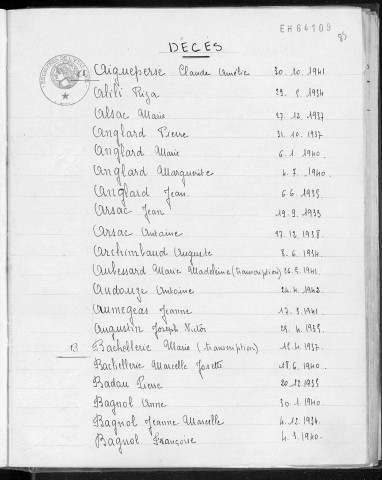 EH 64109
DÉCÈS
Aigueperse Claude Amélie 30.10.1941
Alili Riza 29.8.1934
Alsac Marie 27.12.1937
Anglard Pierre 31.10.1937
Anglard Marie 6.1.1940
Anglard Marguerite 4.7.1940
Anglard Jean 6.6.1935
Arsac Jean 19.9.1933
Arsac Antoine 27.12.1938
Archimbaud Auguste 8.6.1934
Aubessard Marie Madeleine (transcription) 26.5.1941
Audouze Antoine 24.4.1942
Aumegeas Jeanne 17.3.1941
Augustin Joseph Victor 28.4.1935
B Bachellerie Marie (transcription) 12.4.1937
Bachellerie Marcelle Josette 18.6.1940
Badau Pierre 20.12.1935
Bagnol Anne 30.1.1940
Bagnol Jeanne Marcelle 4.12.1934
Bagnol Françoise 4.3.1940